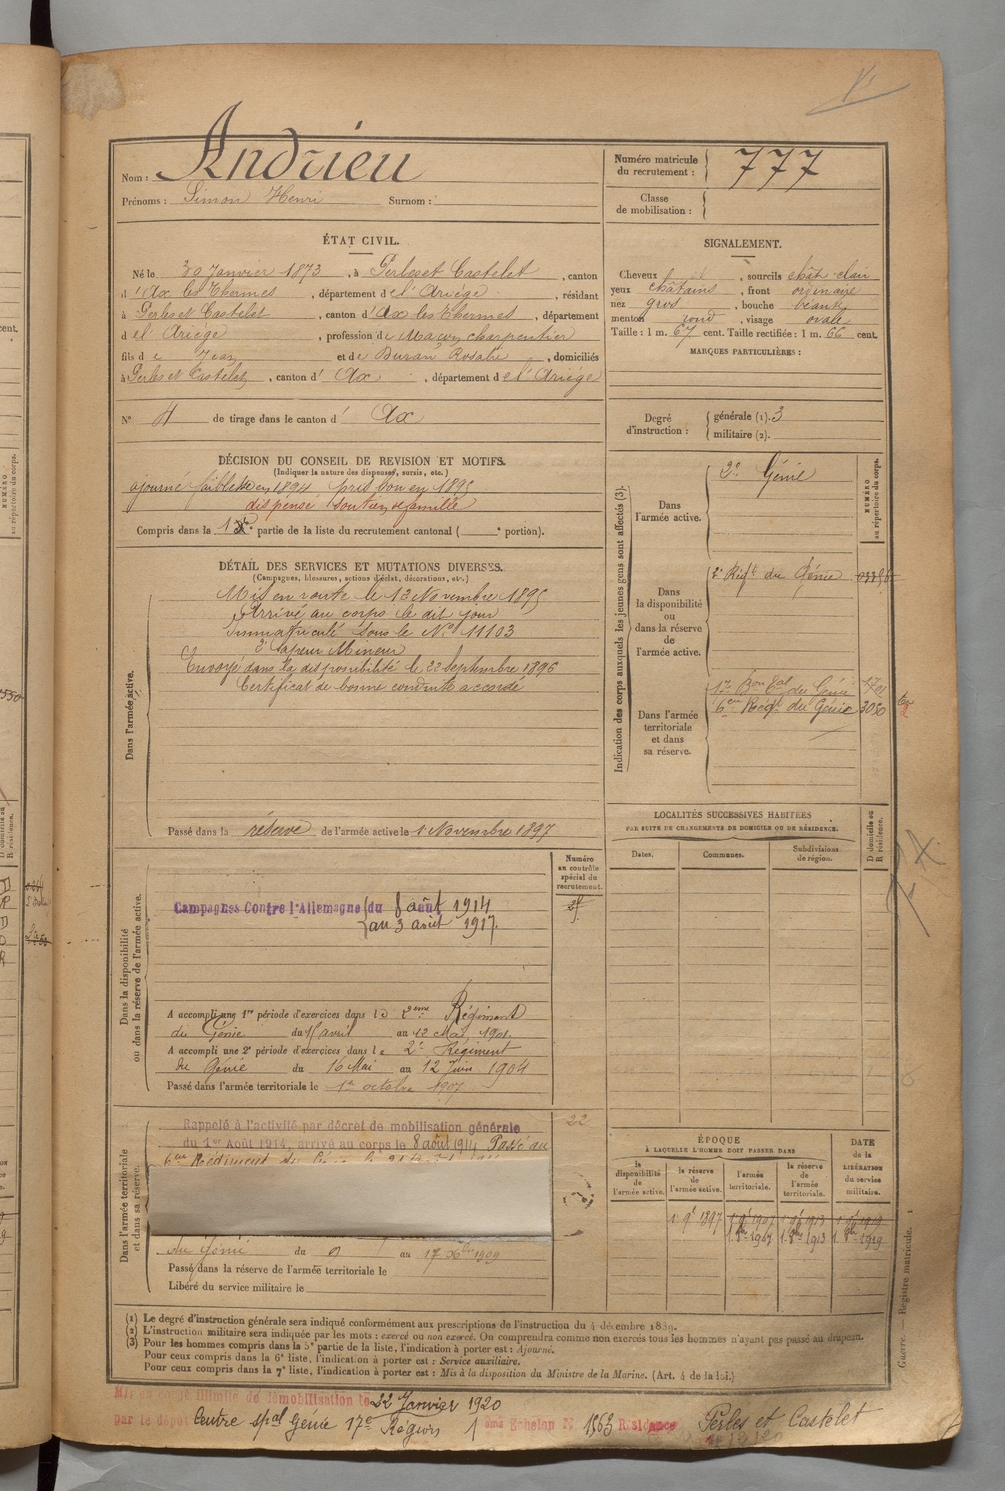 Nom : Andrieu
Prénoms : Simon Henri Surnom :
Numéro matricule du recrutement : 777
Classe de mobilisation :
ÉTAT CIVIL.
Né le 30 Janvier 1873, à Perles et Castelet, canton
d'Ax les Thermes, département de l'Ariège, résidant
à Perles et Castelet, canton d'Ax les Thermes, département
d el Ariège, profession de Maçon charpentier
fils de Jean et de Duran Rosalie, domiciliés
à Perles et Castelet, canton d' Ax, département de l'Ariège
N° 4 de tirage dans le canton d' Ax
SIGNALEMENT.
Cheveux , sourcils chât. clair
yeux châtains, front ordinaire
nez gros, bouche
menton rond, visage ovale
Taille : 1 m. 67 cent. Taille rectifiée : 1 m. 66 cent.
MARQUES PARTICULIÈRES :
Degré d'instruction : générale (1). 3
militaire (2).
DÉCISION DU CONSEIL DE REVISION ET MOTIFS.
(Indiquer la nature des dispenses, sursis, etc.)
ajourné faiblesse en 1894 pris bon en 1895
dispensé soutien de famille
Compris dans la 1re partie de la liste du recrutement cantonal ( e portion).
DÉTAIL DES SERVICES ET MUTATIONS DIVERSES.
(Campagnes, blessures, actions d'éclat, décorations, etc.)
Dans l'armée active.
Mis en route le 13 Novembre 1895
Arrivé au corps le dit jour
Immatriculé sous le N° 11103
2e Sapeur Mineur
Envoyé dans la disponibilité le 22 Septembre 1896
Certificat de bonne conduite accordé
Passé dans la réserve de l'armée active le 1 Novembre 1897
Indication des corps auxquels les jeunes gens sont affectés (3).
NUMÉRO au répertoire du corps.
Dans l'armée active.
2e Génie
Dans la disponibilité ou dans la réserve de l'armée active.
2e Régt du Génie
Dans l'armée territoriale et dans sa réserve.
17e Bon Tal du Génie 1701
6em Régt du Génie 3050
LOCALITÉS SUCCESSIVES HABITÉES
PAR SUITE DE CHANGEMENTS DE DOMICILE OU DE RÉSIDENCE.
Dates. Communes. Subdivisions de région. D domicile ou R résidence.
Dans la disponibilité ou dans la réserve de l'armée active.
Numéro au contrôle spécial du recrutement.
Campagnes Contre l'Allemagne du 8 août 1914
au 3 août 1917.
A accompli une 1re période d'exercices dans le 2eme Régiment
du Génie du 15 avril au 12 Mai 1901.
A accompli une 2e période d'exercices dans le 2e Régiment
du Génie du 16 Mai au 12 Juin 1904
Passé dans l'armée territoriale le 1er octobre 1907
Dans l'armée territoriale et dans sa réserve.
22
Rappelé à l'activité par décret de mobilisation générale
du 1er Août 1914, arrivé au corps le 8 août 1914 Passé au
6em Régiment du Génie le
du Génie du 9 au 17 Xbre 1909
Passé dans la réserve de l'armée territoriale le
Libéré du service militaire le
ÉPOQUE
À LAQUELLE L'HOMME DOIT PASSER DANS
DATE de la LIBÉRATION du service militaire.
la disponibilité de l'armée active. la réserve de l'armée active. l'armée territoriale. la réserve de l'armée territoriale.
1. 9e 1897 1. 9e 1907 1. 9e 1913 1. 9e 1919
1. 8bre 1907 1. 8bre 1913 1. 8bre 1919
(1) Le degré d'instruction générale sera indiqué conformément aux prescriptions de l'instruction du 4 décembre 1889.
(2) L'instruction militaire sera indiquée par les mots : exercé ou non exercé. On comprendra comme non exercés tous les hommes n'ayant pas passé au drapeau.
(3) Pour les hommes compris dans la 5e partie de la liste, l'indication à porter est : Ajourné.
Pour ceux compris dans la 6e liste, l'indication à porter est : Service auxiliaire.
Pour ceux compris dans la 7e liste, l'indication à porter est : Mis à la disposition du Ministre de la Marine. (Art. 4 de la loi.)
Guerre. — Registre matricule. 1
Mis en congé illimité de démobilisation le 22 Janvier 1920
par le dépôt Centre spal Génie 17e Région 1 eme Echelon N° 1563 Résidence Perles et Castelet